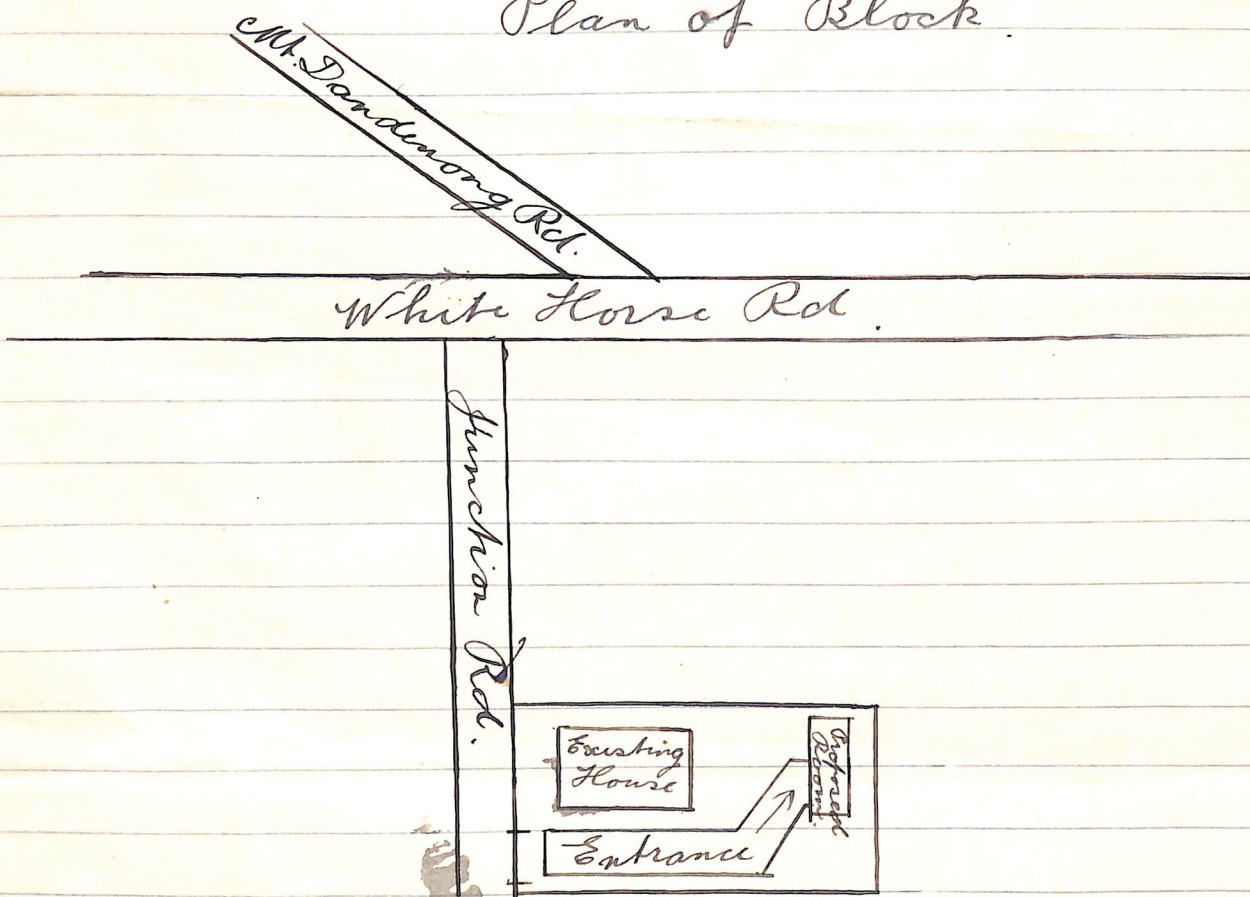 Plan of Block.
Mt. Dandenong Rd.
White Horse Rd.
Junction Rd.
Existing
House
Proposed
Room.
Entrance